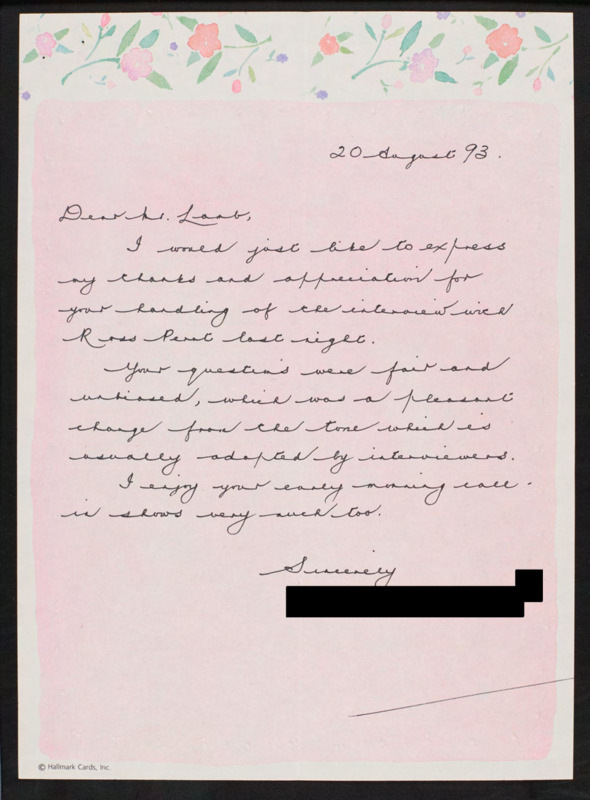 20 August 93.
Dear Mr. Lamb,
I would just like to express
my thanks and appreciation for
your handling of the interview with
Ross Perot last night.
Your questions were fair and
unbiased, which was a pleasant
change from the tone which is
usually adopted by interviewers.
I enjoy your early morning call-
in shows very much too.
Sincerely
© Hallmark Cards, Inc.